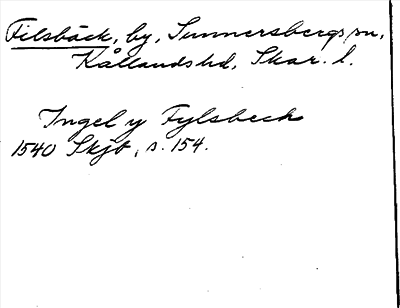 Filsbäck, by, Sunnersbergs sn,
Kållands hd, Skar. l.
Ingel y Fylsbeck
1540 Skjb, s. 154.